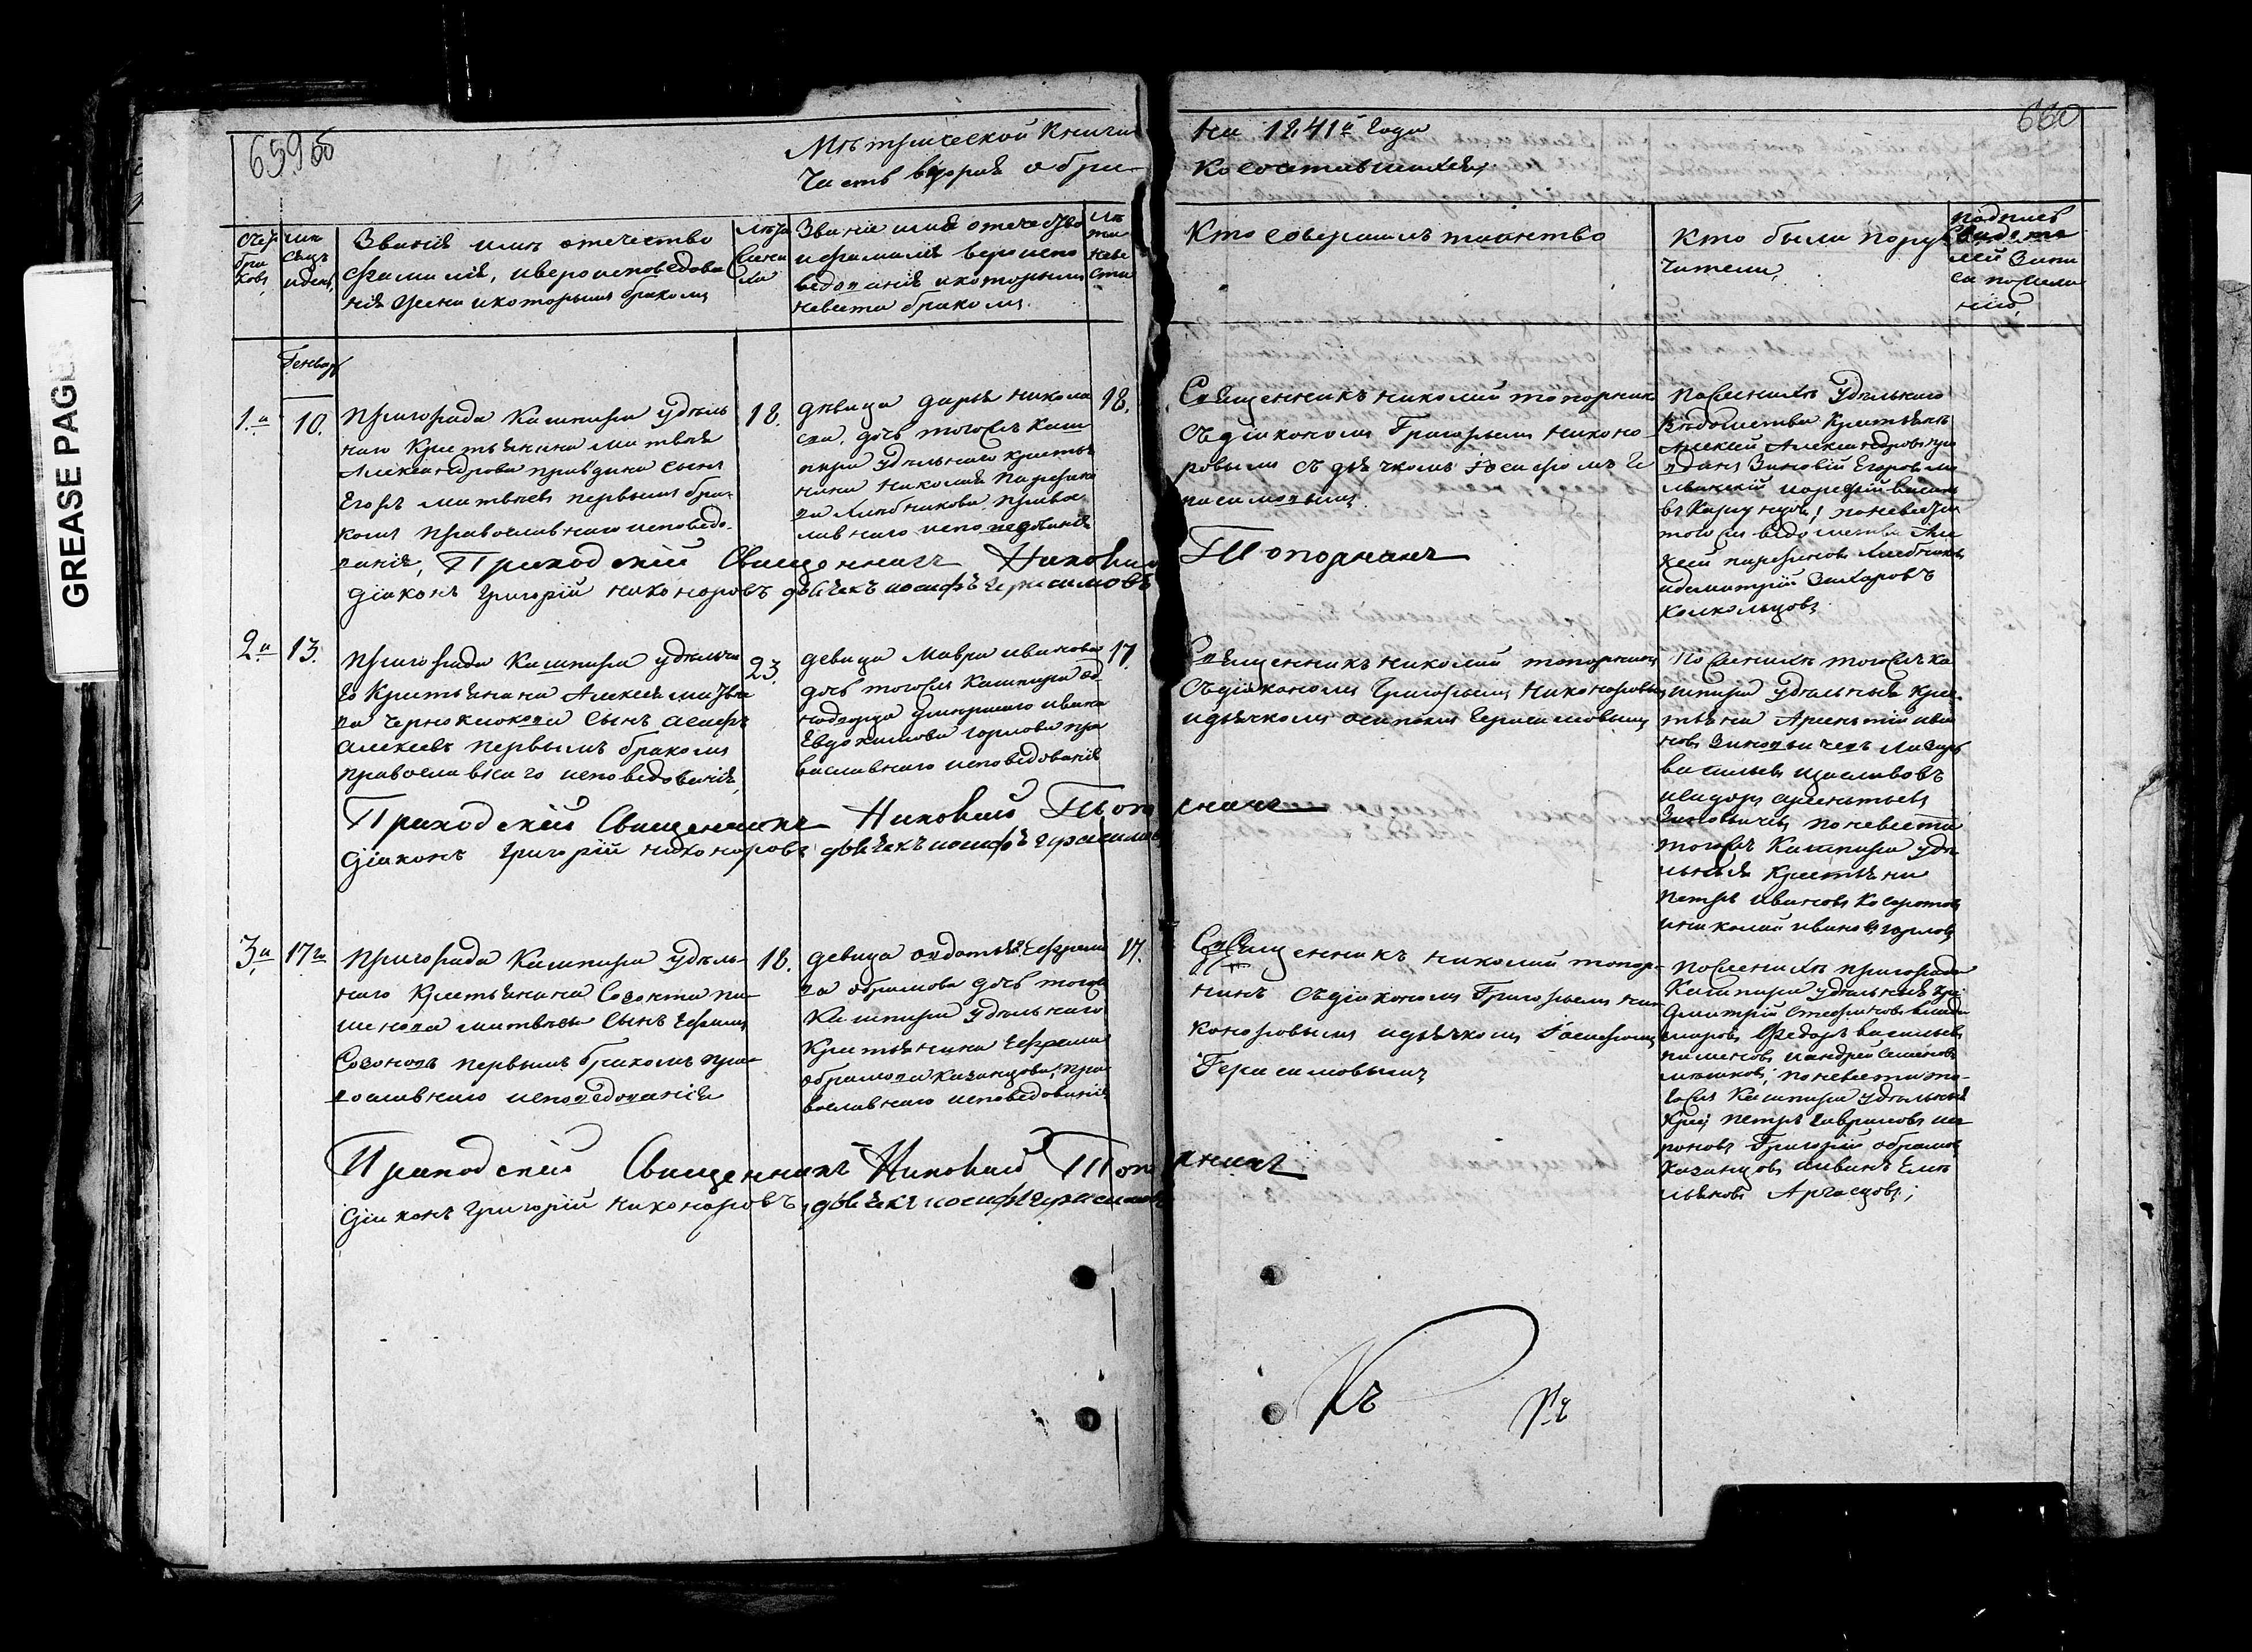 GREASE PAGES
659об
Метрической Книги
Часть вторая о бра-
на 1841й года
косочетавшихся,
660
Счетъ
бра
ковъ
мѣ
сецъ
и день,
Званіе имя отечество
фамилія, и вероисповедова
нія жениха и которымъ бракомъ
лѣта
жени
ха
Званіе имя отечество
и фамилія вероиспо
ведоганія и которымъ
невеста бракомъ.
лѣ
та
неве
сты
Кто совершалъ таинство
Кто были пору
чители,
подпись
свидете
лей запи
си по жела
нію,
Генварь
1.а
10.
Пригорода Кашпира удѣль
наго Крестьянина Матвея
Александрова сынъ
Егоръ Матвѣевъ первымъ бра-
комъ православнаго исповедо-
ванія,
18.
девица Дарья Никола
ева, дочь тогожъ Каш
пира удѣльнаго крестья
нина Николая Парфено
ва Хлебникова, Правос
лавнаго исповедованія
18.
Священникъ Николай Топорнинъ
съ діакономъ Григорьемъ Никано
ровымъ съ дьячкомъ Іосифомъ Ге
расимовымъ
По женихѣ удѣльнаго
Вѣдомства Крестьяне
Алексей Александровъ
Зиновій Егоровъ
Василь
евъ по невестѣ
того жъ ведомства
Парфеновъ Хлебников
и Димитрій Захаровъ
Колкольцовъ
Приходскій Священникъ Николай Топорнинъ
Діаконъ Григорій Никаноровъ дьячекъ Іосифъ Герасимовъ
2.а
13.
Пригорода Кашпира удѣльна
го Крестьянина Алексея Матве
ва Черноклокова сынъ
Алексеевъ первымъ бракомъ
православнаго исповедованія,
23.
девица Мавра Иванова
дочь тогожъ Кашпира од-
нодворца Ивана
Евдокимова Горлова пра
вославнаго исповедованія
17.
Священникъ Николай Топорнинъ
съ діакономъ Григорьемъ Никаноровымъ
и дьячкомъ Осипомъ Герасимовымъ
По женихѣ тогожъ Ка
шпира удѣльныя крес-
тьяна Арсентій Ива
новъ Зиновьичевъ Лазарь
Васильевъ Щасливовъ
Исидоръ Арсентьевъ
Зиновьичевъ по невесте
тогожъ Кашпира удѣ
льныя крестьяна
Петръ Ивановъ
и Николай Ивановъ Горловъ
Приходскій Священникъ Николай Топорнинъ
Діаконъ Григорій Никаноровъ дьячекъ Іосифъ Герасимовъ
3.а
17го
Пригорода Кашпира удѣль-
наго Крестьянина Созонта Пи-
менова Матвѣева сынъ Ефимъ
Созоновъ первымъ бракомъ пра-
вославнаго исповедованія
18.
девица Авдотья Ефремо
ва Абрамова дочь тогожъ
Кашпира удѣльнаго
Крестьянина Ефрема
Абрамова Казанцова, пра
вославнаго исповедованія
17.
Священникъ Николай Топор-
нинъ съ діакономъ Григорьемъ Ни-
каноровымъ и дьячкомъ Іосифомъ
Герасимовымъ
По женихѣ пригорода
Кашпира удѣльныя кре:
Димитрій Стефановъ
Федоръ Васильевъ
Пименовъ и Андрей Семеновъ
по невесте то-
гожъ Кашпира удѣльныя
кре: Петръ Гавриловъ
Григорій Абрамовъ
Казанцовъ и Иванъ Еме
льяновъ
Приходскій Священникъ Николай Топорнинъ
Діаконъ Григорій Никаноровъ, дьячекъ Іосифъ Герасимовъ